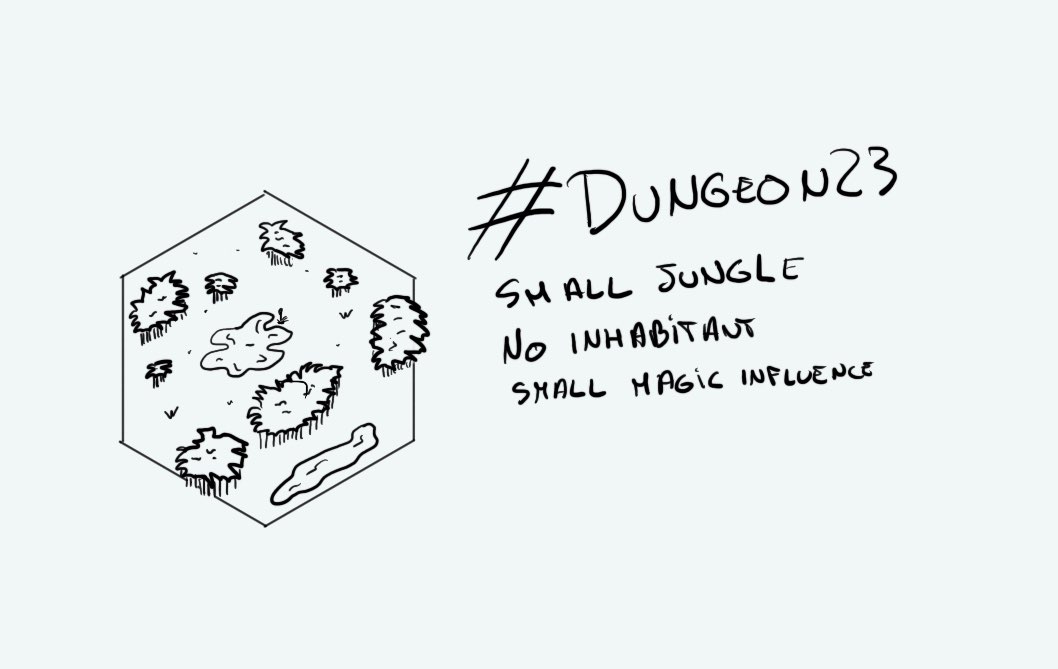 #DUNGEON23
SMALL JUNGLE
NO INHABITANT
SMALL MAGIC INFLUENCE